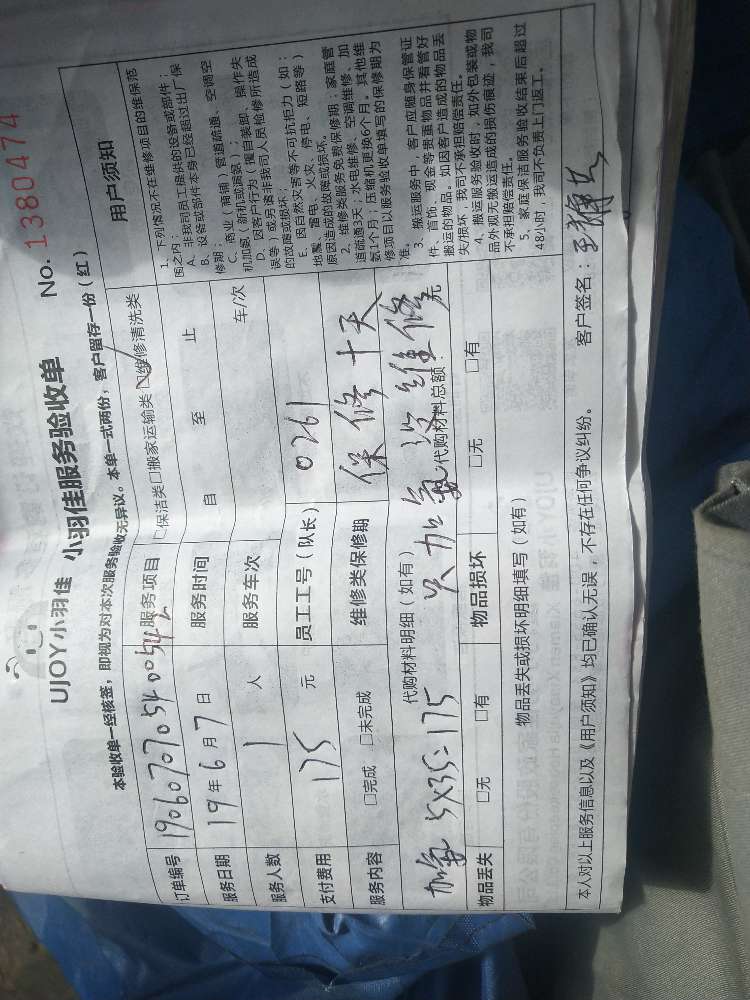 UJOY小羽佳 小羽佳服务验收单 No. 1380474
本验收单一经核签，即视为对本次服务验收无异议。本单一式两份，客户留存一份（红）
订单编号 190607070540054 服务项目 □保洁类□搬家运输类☑维修清洗类
服务日期 19年6月7日 服务时间 自 至 止
服务人数 1 人 服务车次 车/次
支付费用 175 元 员工工号（队长） 0261
服务内容 □完成 □未完成 维修类保修期 保修十天
代购材料明细（如有） 代购材料总额： 元
加氟 5X35=175 加氟 维修
物品丢失 □无 □有 物品损坏 □无 □有
物品丢失或损坏明细填写（如有）
本人对以上服务信息以及《用户须知》均已确认无误，不存在任何争议纠纷。 客户签名：
用户须知
1、下列情况不在维修项目的维保范
围之内：
A、非我司员工提供的设备或部件；
B、设备或部件本身已经超过出厂保
修期；
C、商业（商铺）管道疏通、空调空
机加氨（新机或满氨）；
D、因客户行为（擅自装卸、操作失
误等）或另请非我司人员检修所造成
的故障或损坏；
E、因自然灾害等不可抗拒力（如：
地震、雷电、火灾、停电、短路等）
原因造成的故障或损坏。
2、维修类服务免费保修期：家庭管
道疏通3天；水电维修、空调维修、加
氨1个月；压缩机更换6个月。其他维
修项目以服务验收单填写的保修期为
准。
3、搬运服务中，客户应随身保管证
件、首饰、现金等贵重物品并看管好
搬运的物品。如因客户造成的物品丢
失/损坏，我司不承担赔偿责任。
4、搬运服务验收时，如外包装或物
品外观无搬运造成的损伤痕迹，我司
不承担赔偿责任。
5、家庭保洁服务验收结束后超过
48小时，我司不负责上门返工。